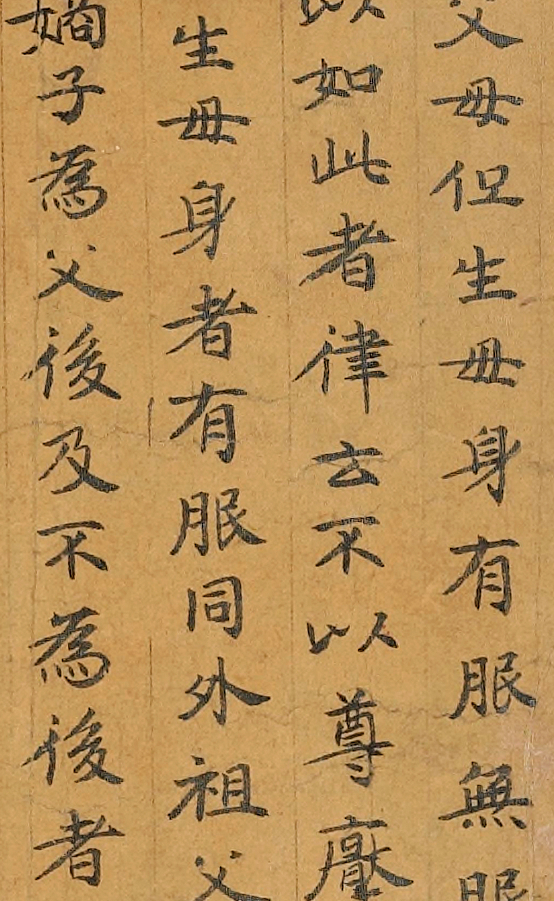 父母但生母身有服無服
以如此者律云不以尊壓
生母身者有服同外祖父
嫡子為父後及不為後者